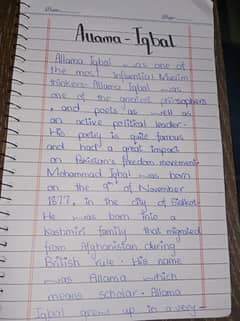 Allama - Iqbal
Allama Iqbal was one of
the most influential Muslim
thinkers. Allama Iqbal was
one of the greatest philosophers
, and poets as well as
an active political leader.
His poetry is quite famous
and had a great impact
on Pakistan's freedom movement.
Mohammad Iqbal was born
on the 9th of November
1877, in the city of Sialkot.
He was born into a
Kashmiri family that migrated
from Afghanistan during
British rule. His name
was Allama which
means scholar. Allama
Iqbal grew up in a very-